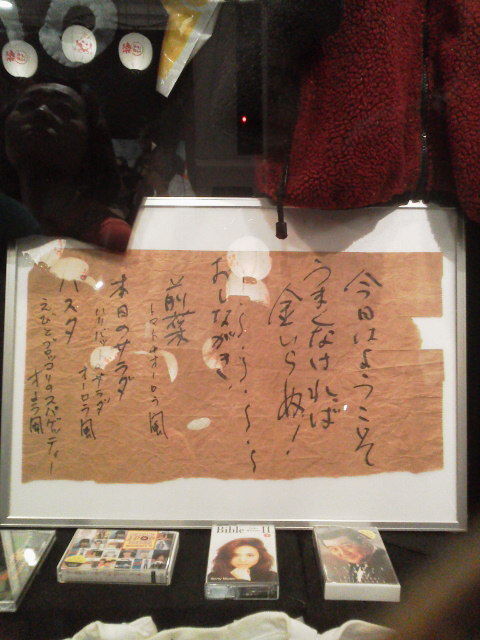 今日はようこそ
うまくなければ
金いら枚!
〜・〜・〜・〜
おしながき
前菜
トマトオーロラ風
本日のサラダ
オーロラ風
パスタ
えびとブロッコリのスパゲッティー
オーロラ風
Bible
II